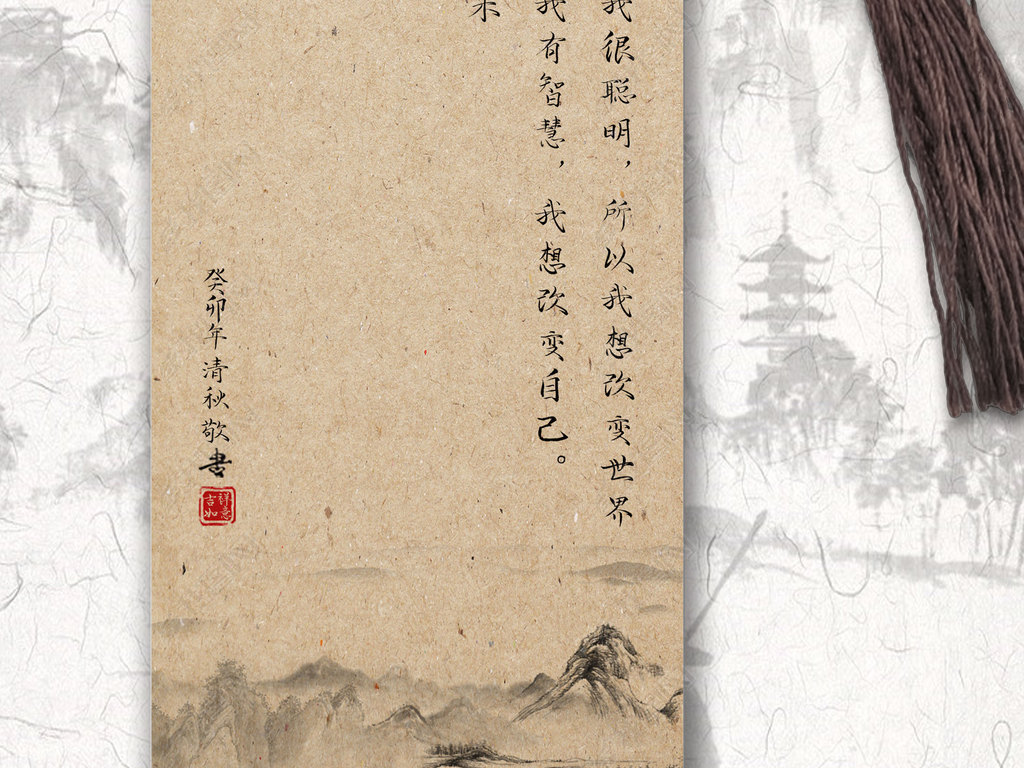 我很聪明，所以我想改变世界
我有智慧，我想改变自己。
癸卯年清秋敬書
吉祥
如意